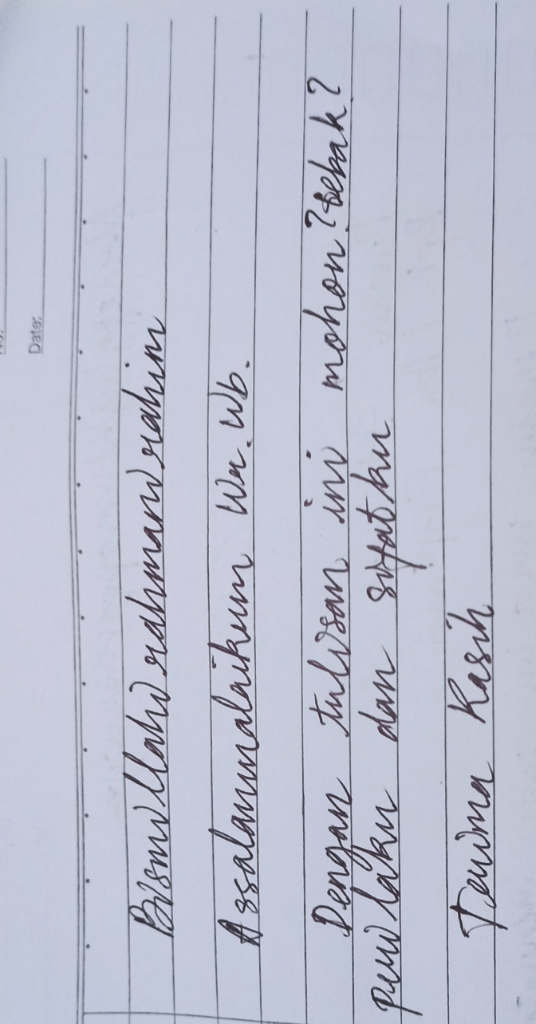 Date:
Bismillahirahmanirahim
Assalammalaikum Wr. Wb.
Dengan tulisan ini mohon? tebak?
perilaku dan sifatku
Terima Kasih